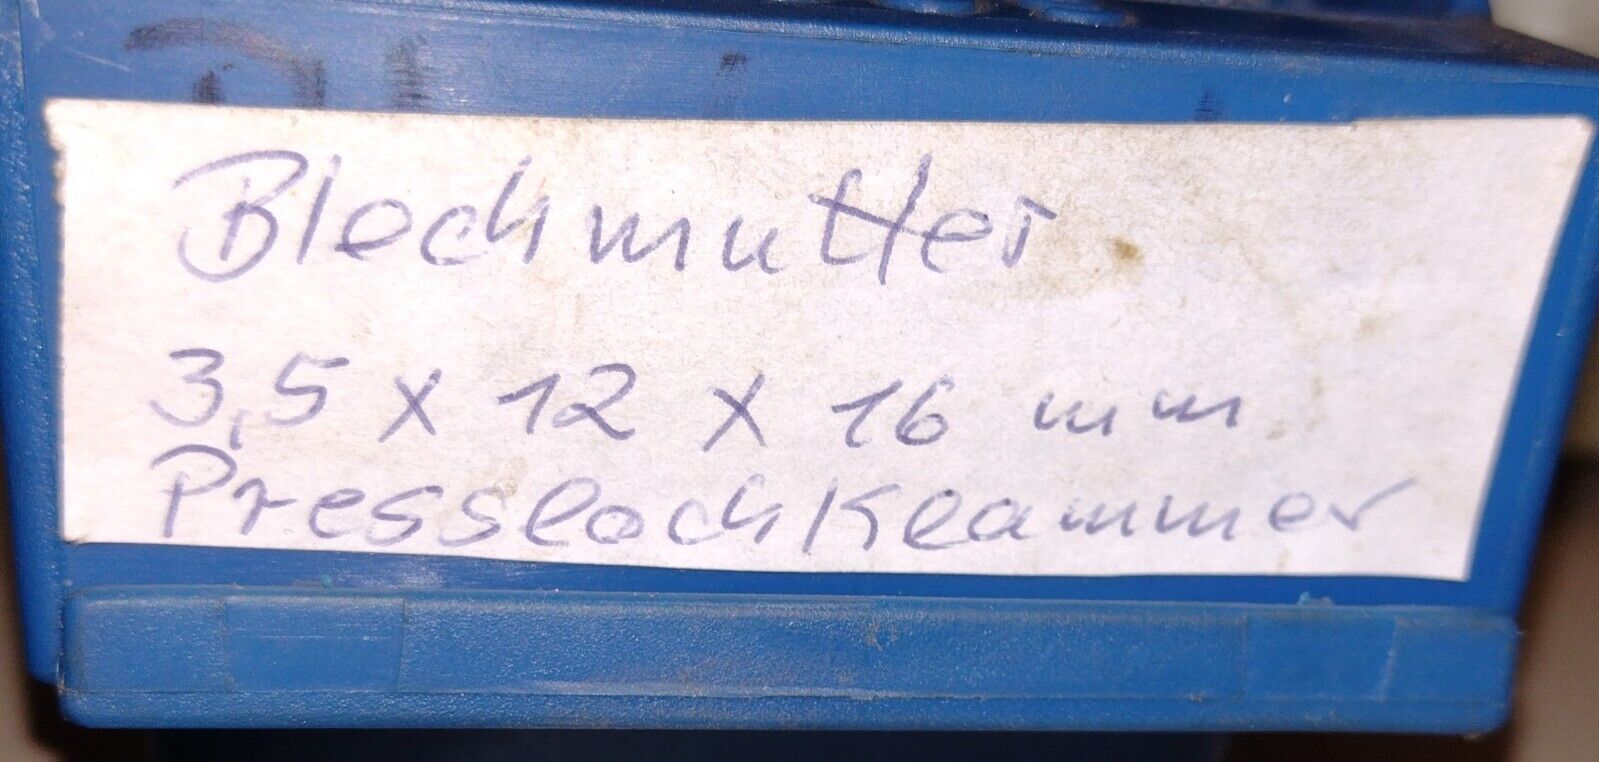 Blechmutter
3,5 x 12 x 16 mm
Presslochklammer